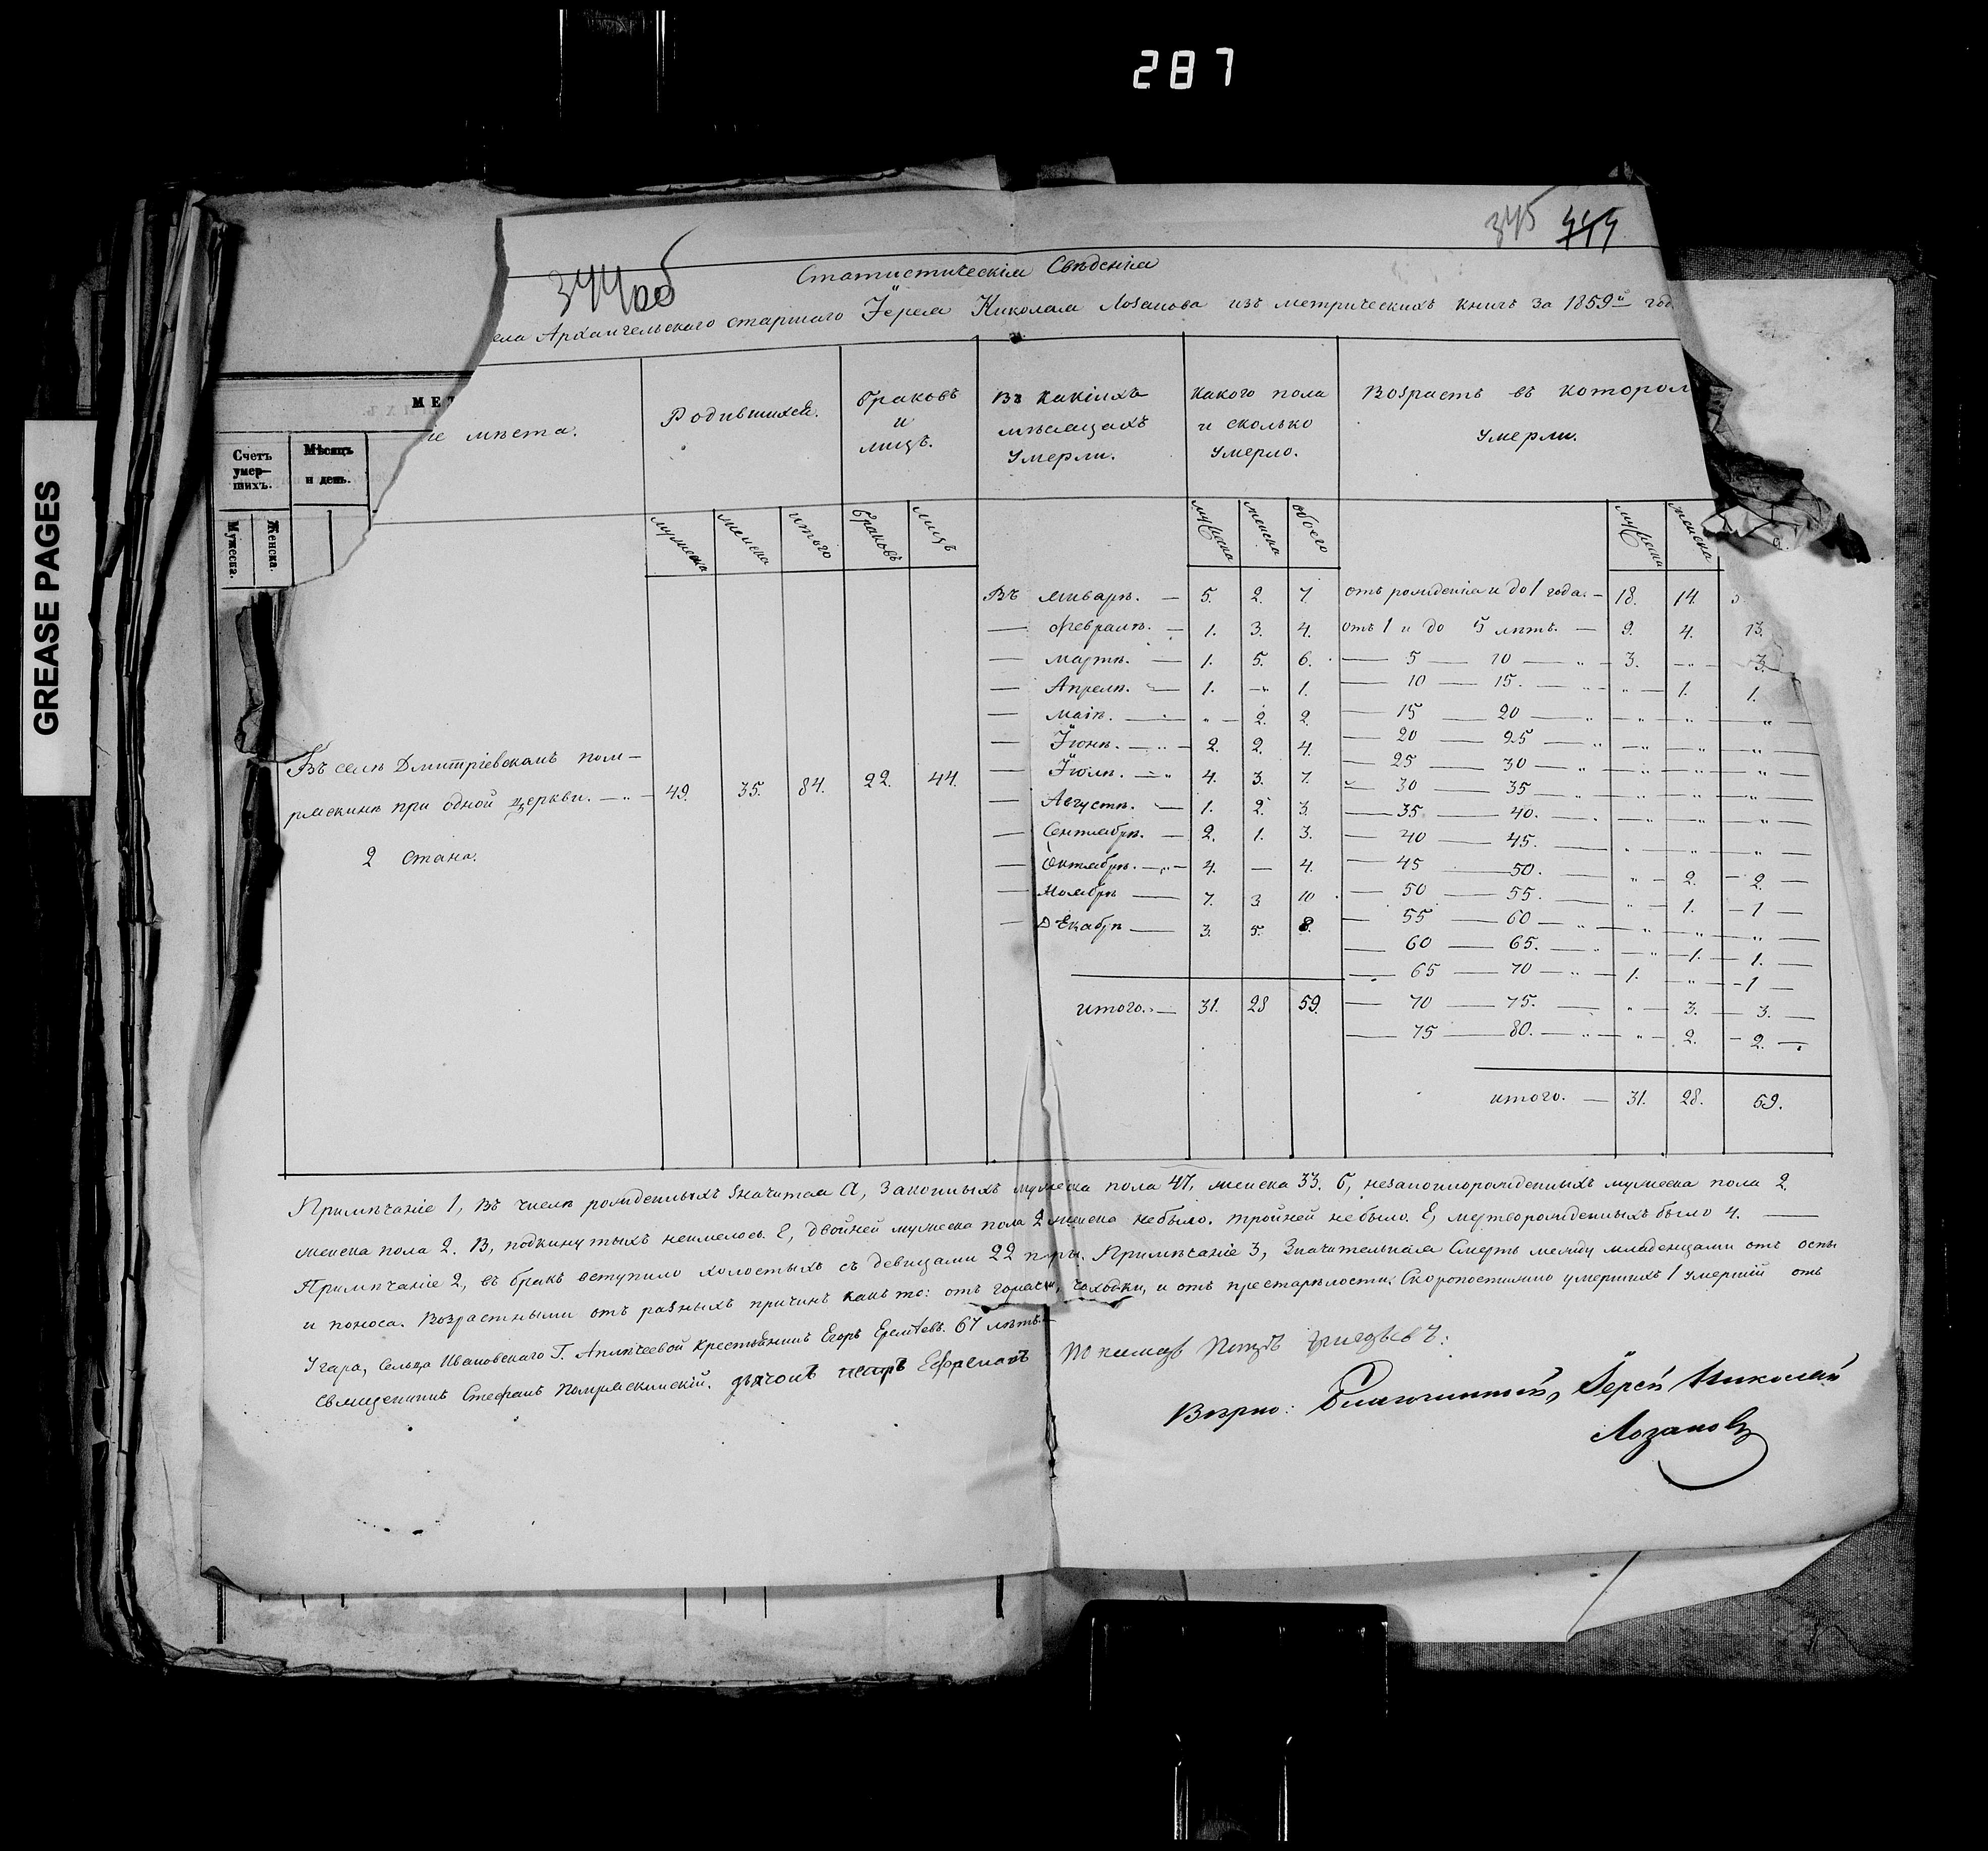 287
GREASE PAGES
345 444
344об
Статистическія Свѣденія
ела Архангельскаго старшаго Їерея Николая Лозанова изъ метрическихъ книгъ за 1859й год
МЕТ
Счетъ умер-шихъ.
Мѣсяцъ и день.
Мужеска.
Женска.
іе мѣста.
Родившихся.
браковъ и лицъ.
Въ какіихъ мѣсяцахъ умерли.
Какого пола и сколько умерло.
Возрастъ въ котором
умерли.
мужеска женска итого браковъ лицъ мужеска женска обоего мужеска женска
Въ Январѣ. — 5. 2. 7. отъ рожденія и до 1 года. — 18. 14. 3
— Февралѣ. — 1. 3. 4. отъ 1 и до 5 лѣтъ. — 9. 4. 13.
— Мартѣ. — 1. 5. 6. — 5 — 10 — „ — 3. — „ — 3.
— Апрелѣ. — 1. — „ 1. — 10 — 15. — „ — „ — 1. 1.
— Маіѣ. — „ — 2. 2. — 15 — 20 — „ — „ — „ — „ —
— Їюнѣ. — „ — 2. 2. 4. — 20 — 25 — „ — „ — „ — „ —
— Їюлѣ. — „ 4. 3. 7. — 25 — 30 — „ — „ — „ — „ —
— Августѣ. — 1. 2. 3. — 30 — 35 — „ — „ — „ — „ —
— Сентябрѣ. — 2. 1. 3. — 35 — 40. — „ — „ — „ — „ —
— Октябрѣ. — „ — 4. — 4. — 40 — 45. — „ — „ — „ —
— Ноябрѣ — 7. 3 10 — 45 — 50. — „ — 2. — 2. —
— Декабрѣ — 3. 5. 8. — 50 — 55. — „ — 1. — 1 —
— 55 — 60 — „ — „ — „ — „ —
— 60 — 65. — „ — „ — 1. — 1. —
— 65 — 70 — „ — 1. — „ — 1 —
итого. — 31. 28 59. — 70 — 75. — „ — 3. — 3. —
— 75 — 80. — „ — „ — 2. — 2. —
итого. — 31. 28. 59.
Въ селѣ Дмитріевскомъ пом-
ряскинѣ при одной церкви. — „ — 49. 35. 84. 22. 44.
2 стана.
Примѣчаніе 1, Въ числѣ рожденныхъ значится А, Законныхъ мужеска пола 47, женска 33. Б, незаконнорожденныхъ мужеска пола 2.
женска пола 2. В, подкинутыхъ неимелось. Е, двойней мужеска пола 2 женска небыло. тройней небыло. Е, мертворожденныхъ было 4. —
Примѣчаніе 2, въ бракъ вступило холостыхъ съ девицами 22 пары. Примѣчаніе 3, Значительная Смерть между младенцами отъ оспы
и поноса. Возрастными отъ разныхъ причинъ какъ то: отъ горячки, чахотки, и отъ престарѣлости. Скоропостижно умершихъ 1 умершій отъ
Угара, сельца Ивановскаго Г. крестьянинъ Егоръ 67 лѣтъ.
Священникъ Стефанъ Помряскинскій. дьячокъ Петръ Ефремовъ
Вѣрно: Благочинный, Їерей Николай
Лозановъ